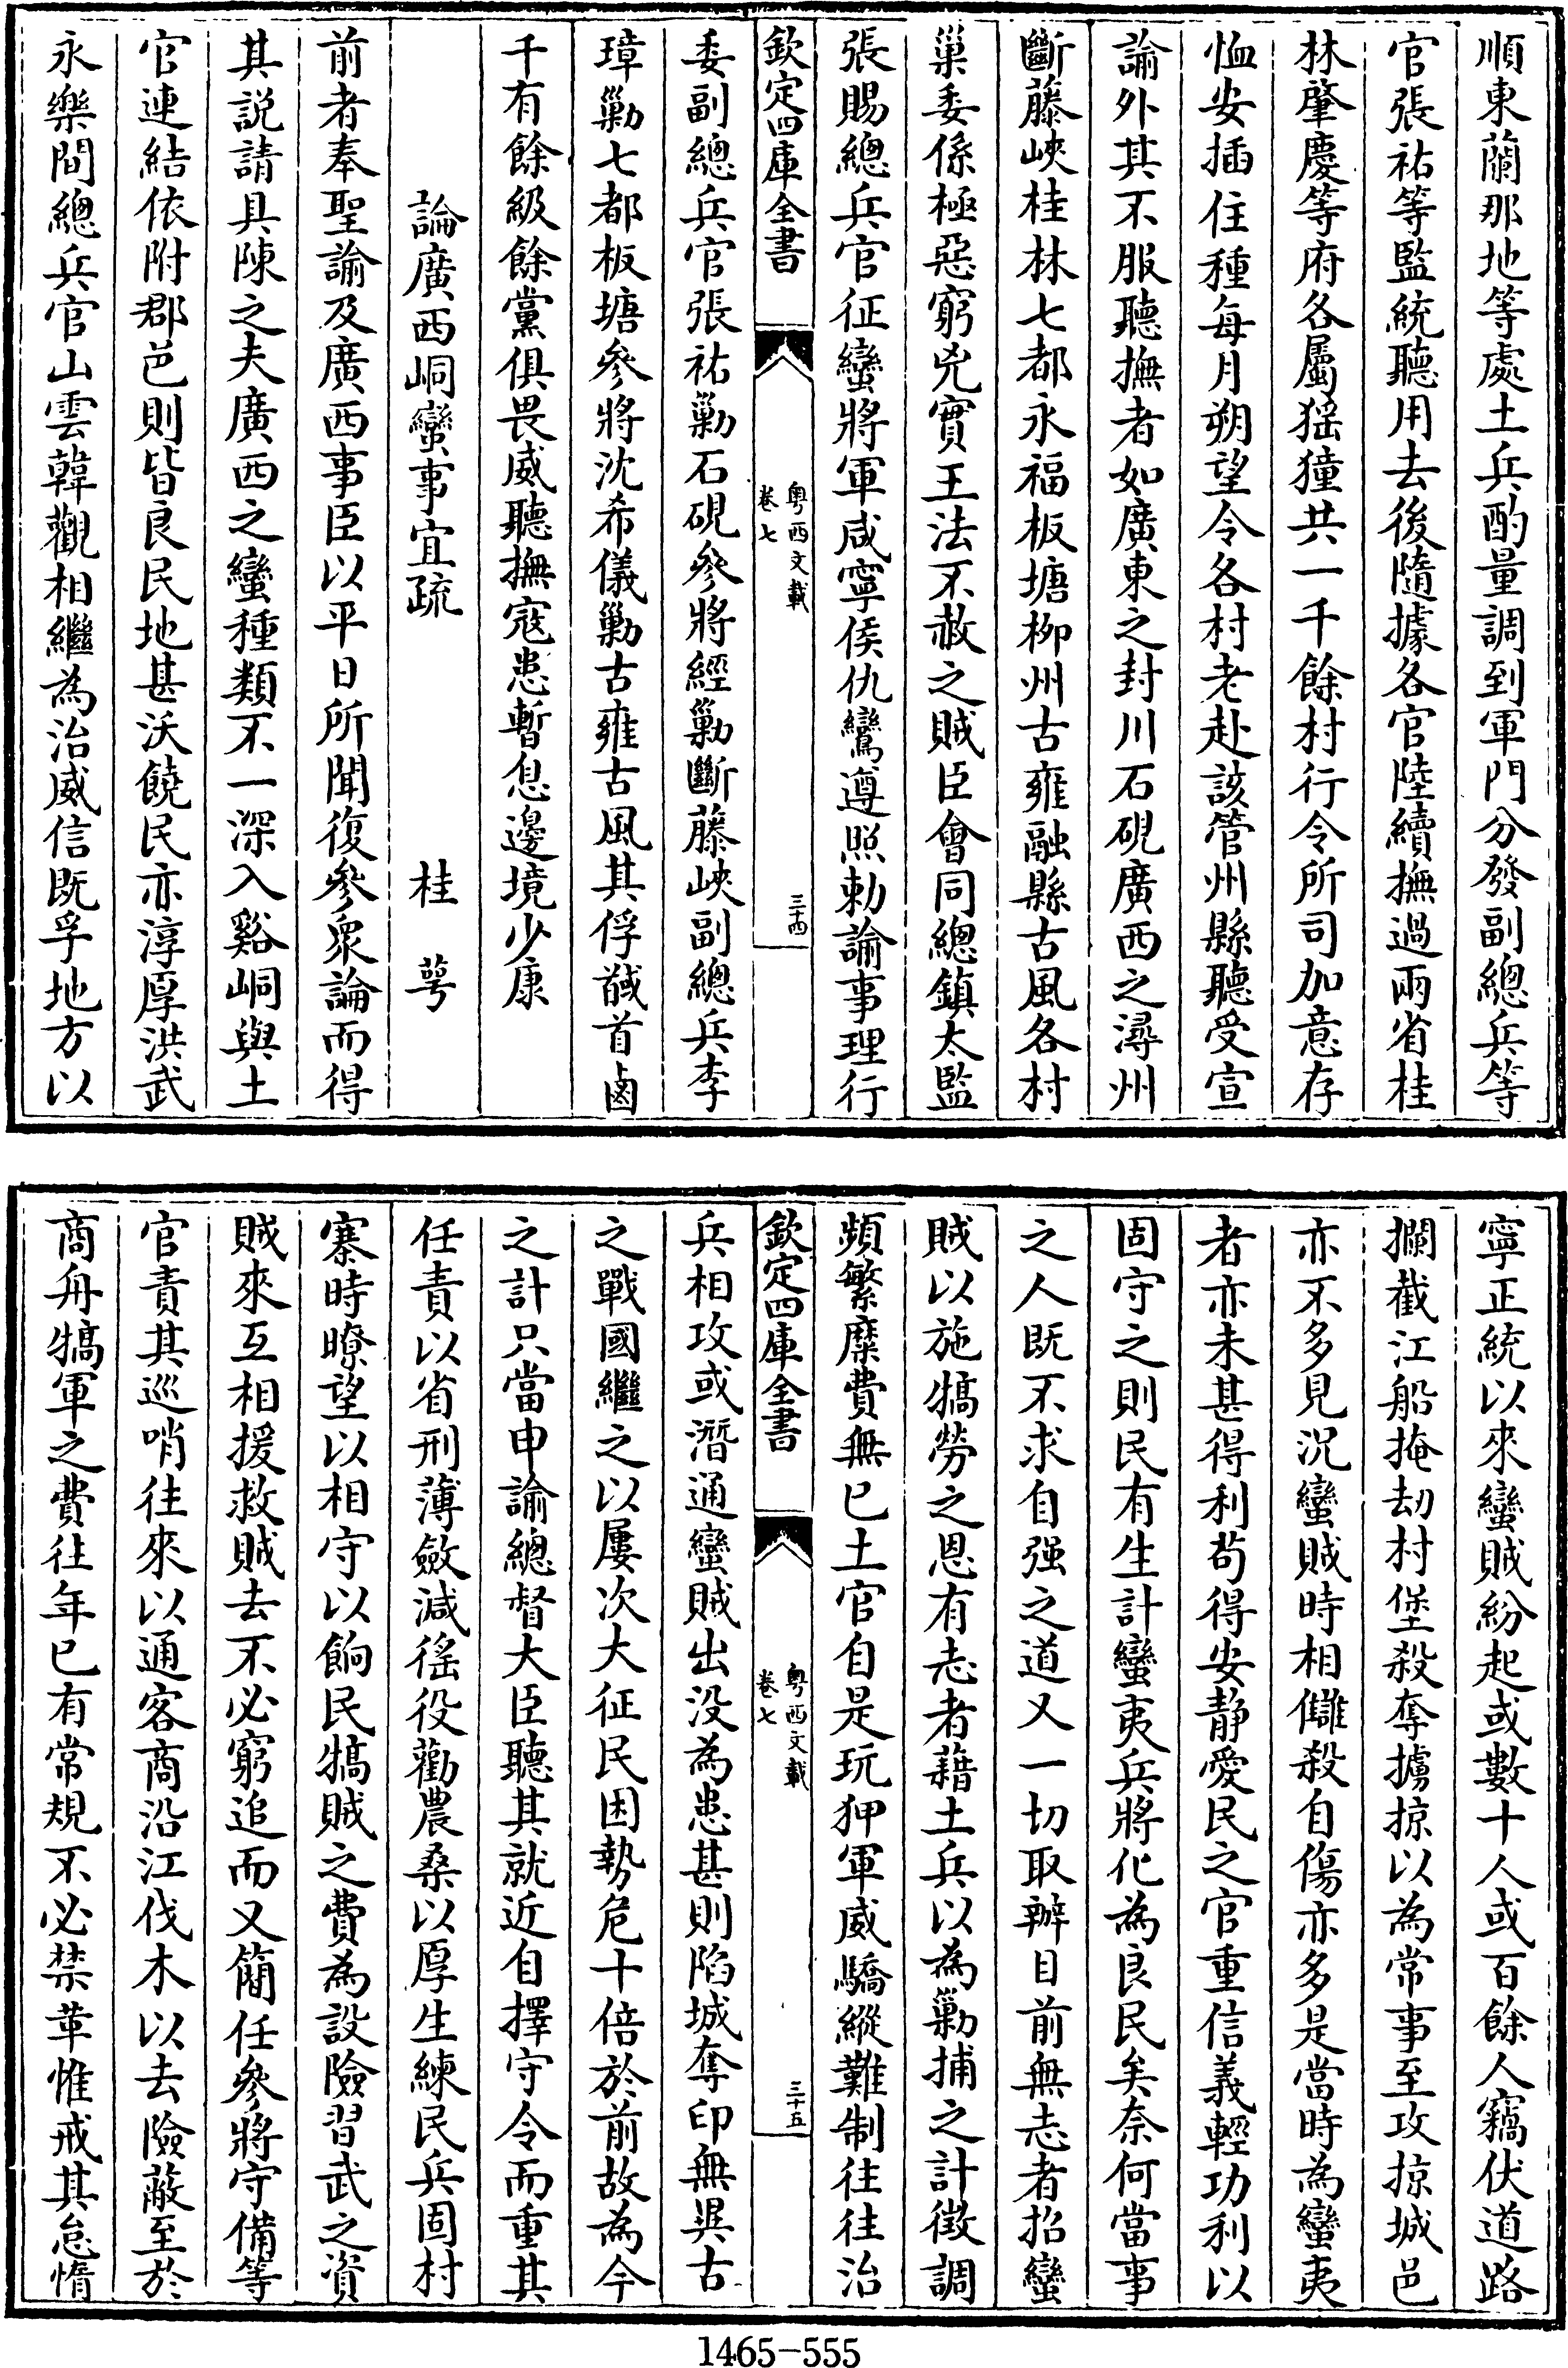 順東蘭那地等處土兵酌量調到軍門分發副總兵等
官張祐等監統聽用去後隨據各官陸續撫過兩省桂
林肇慶等府各屬猺獞共一千餘村行令所司加意存
恤安插住種每月朔望令各村老赴該管州縣聽受宣
諭外其不服聽撫者如廣東之封川石硯廣西之潯州
斷藤峽桂林七都永福板塘柳州古雍融縣古風各村
巢委係極惡窮兇實王法不赦之賊臣會同總鎮太監
張賜總兵官征蠻將軍咸寧侯仇鸞遵照勅諭事理行
欽定四庫全書
粵西文載
卷七
三十四
委副總兵官張祐勦石硯參將經勦斷藤峽副總兵李
璋勦七都板塘參將沈希儀勦古雍古風其俘馘首鹵
千有餘級餘黨俱畏威聽撫寇患暫息邊境少康
論廣西峒蠻事宜疏 桂萼
前者奉聖諭及廣西事臣以平日所聞復參衆論而得
其説請具陳之夫廣西之蠻種類不一深入谿峒與土
官連結依附郡邑則皆良民地甚沃饒民亦淳厚洪武
永樂間總兵官山雲韓觀相繼為治威信既孚地方以
寧正統以來蠻賊紛起或數十人或百餘人竊伏道路
攔截江船掩劫村堡殺奪擄掠以為常事至攻掠城邑
亦不多見况蠻賊時相讎殺自傷亦多是當時為蠻夷
者亦未甚得利苟得安靜愛民之官重信義輕功利以
固守之則民有生計蠻夷兵將化為良民矣奈何當事
之人既不求自强之道又一切取辦目前無志者招蠻
賊以施犒勞之恩有志者藉土兵以為勦捕之計徴調
頻繁糜費無已土官自是玩狎軍威驕縱難制往往治
欽定四庫全書
粵西文載
卷七
三十五
兵相攻或潛通蠻賊出没為患甚則陷城奪印無異古
之戰國繼之以屢次大征民困勢危十倍於前故為今
之計只當申諭總督大臣聽其就近自擇守令而重其
任責以省刑薄斂減徭役勸農桑以厚生練民兵固村
寨時瞭望以相守以餉民犒賊之費為設險習武之資
賊來互相援救賊去不必窮追而又簡任參將守備等
官責其巡哨往來以通客商沿江伐木以去險蔽至於
商舟犒軍之費往年已有常規不必禁革惟戒其怠惰
1465-555